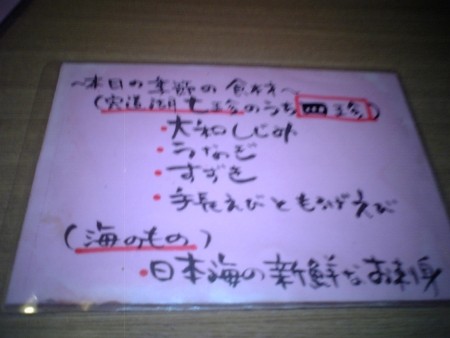 〜本日の季節の食材〜
(宍道湖七珍のうち四珍)
・大和しじみ
・うなぎ
・すずき
・手長えびともろげえび
(海のもの)
・日本海の新鮮なお刺身